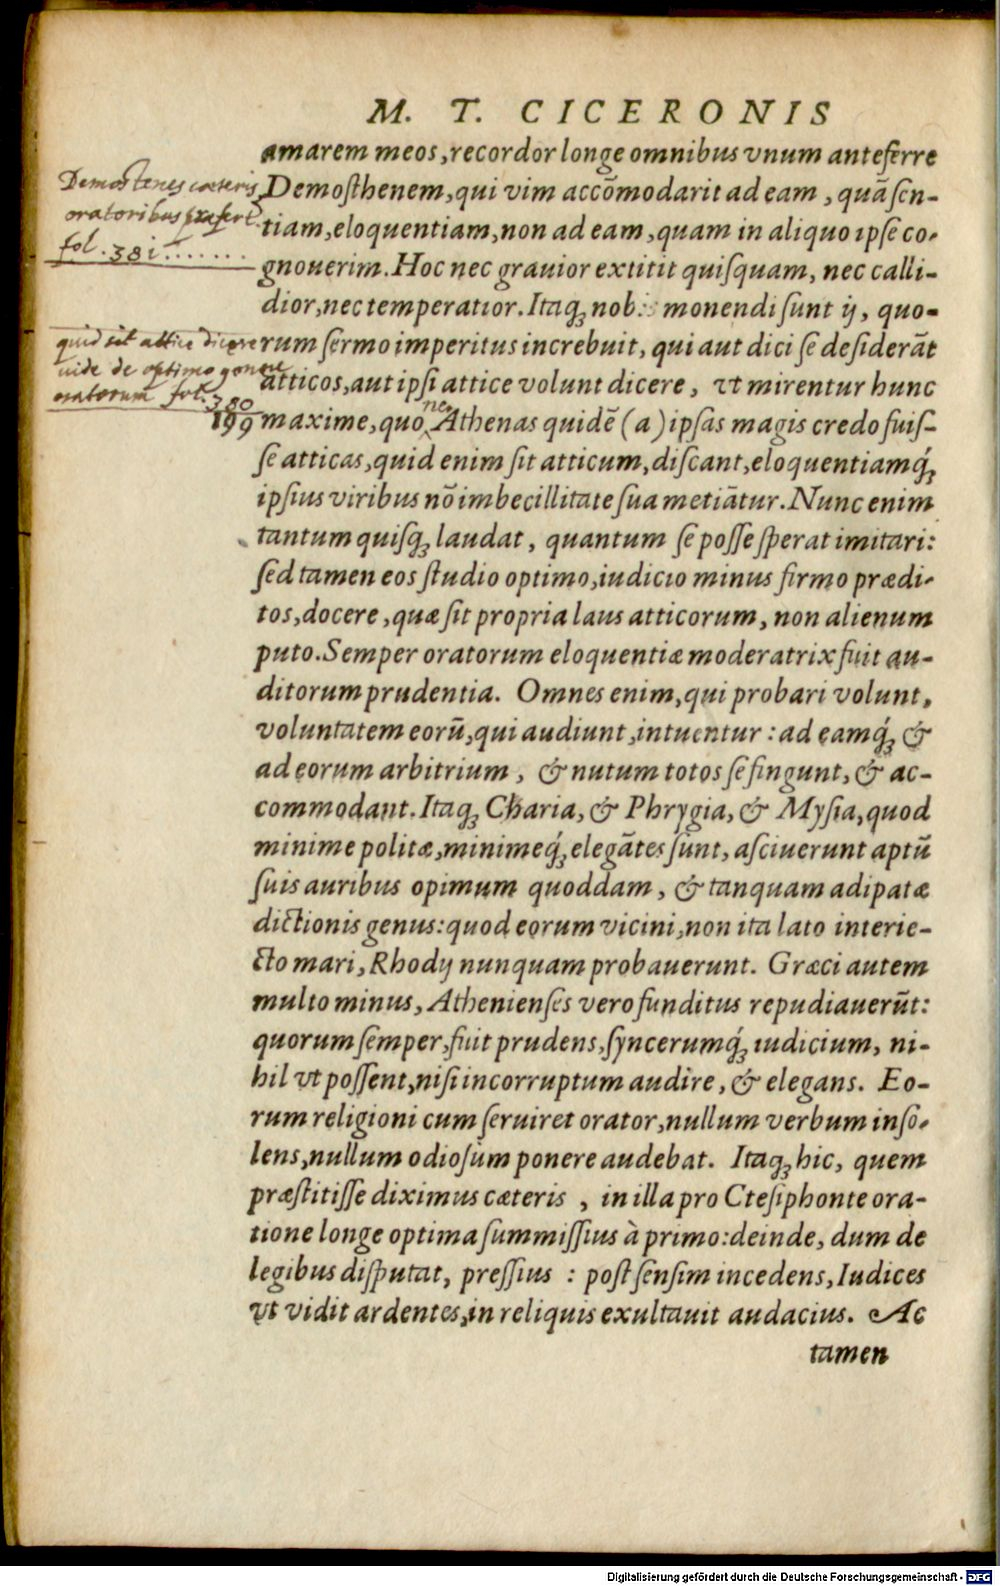 M. T. CICERONIS
amarem meos, recordor longe omnibus vnum anteferre
Demosthenes cæteris
Demoſthenem, qui vim accōmodarit ad eam, quā ſen-
oratoribus præfert.
tiam, eloquentiam, non ad eam, quam in aliquo ipſe co-
fol. 381.......
gnouerim. Hoc nec grauior extitit quiſquam, nec calli-
dior, nec temperatior. Itaq; nobis monendi ſunt ij, quo-
quid sit attice dicere
rum ſermo imperitus increbuit, qui aut dici ſe deſiderāt
uide de optimo genere
atticos, aut ipſi attice volunt dicere, vt mirentur hunc
oratorum fol. 380
199 maxime, quo ne Athenas quidē (a) ipſas magis credo fuiſ-
ſe atticas, quid enim ſit atticum, diſcant, eloquentiamq́;
ipſius viribus nō imbecillitate ſua metiātur. Nunc enim
tantum quiſq; laudat, quantum ſe poſſe ſperat imitari:
ſed tamen eos ſtudio optimo, iudicio minus firmo prædi-
tos, docere, quæ ſit propria laus atticorum, non alienum
puto. Semper oratorum eloquentiæ moderatrix fuit au-
ditorum prudentia. Omnes enim, qui probari volunt,
voluntatem eorū, qui audiunt, intuentur: ad eamq́; &
ad eorum arbitrium, & nutum totos ſe fingunt, & ac-
commodant. Itaq; Charia, & Phrygia, & Myſia, quod
minime politæ, minimeq́; elegātes ſunt, aſciuerunt aptū
ſuis auribus opimum quoddam, & tanquam adipatæ
dictionis genus: quod eorum vicini, non ita lato interie-
cto mari, Rhodij nunquam probauerunt. Græci autem
multo minus, Athenienſes vero funditus repudiauerūt:
quorum ſemper, fuit prudens, ſyncerumq́; iudicium, ni-
hil vt poſſent, niſi incorruptum audire, & elegans. Eo-
rum religioni cum ſeruiret orator, nullum verbum inſo-
lens, nullum odioſum ponere audebat. Itaq; hic, quem
præſtitiſſe diximus cæteris, in illa pro Cteſiphonte ora-
tione longe optima ſummiſſius à primo: deinde, dum de
legibus diſputat, preſſius : poſt ſenſim incedens, Iudices
vt vidit ardentes, in reliquis exultauit audacius. Ac
tamen
Digitalisierung gefördert durch die Deutsche Forschungsgemeinschaft - DFG